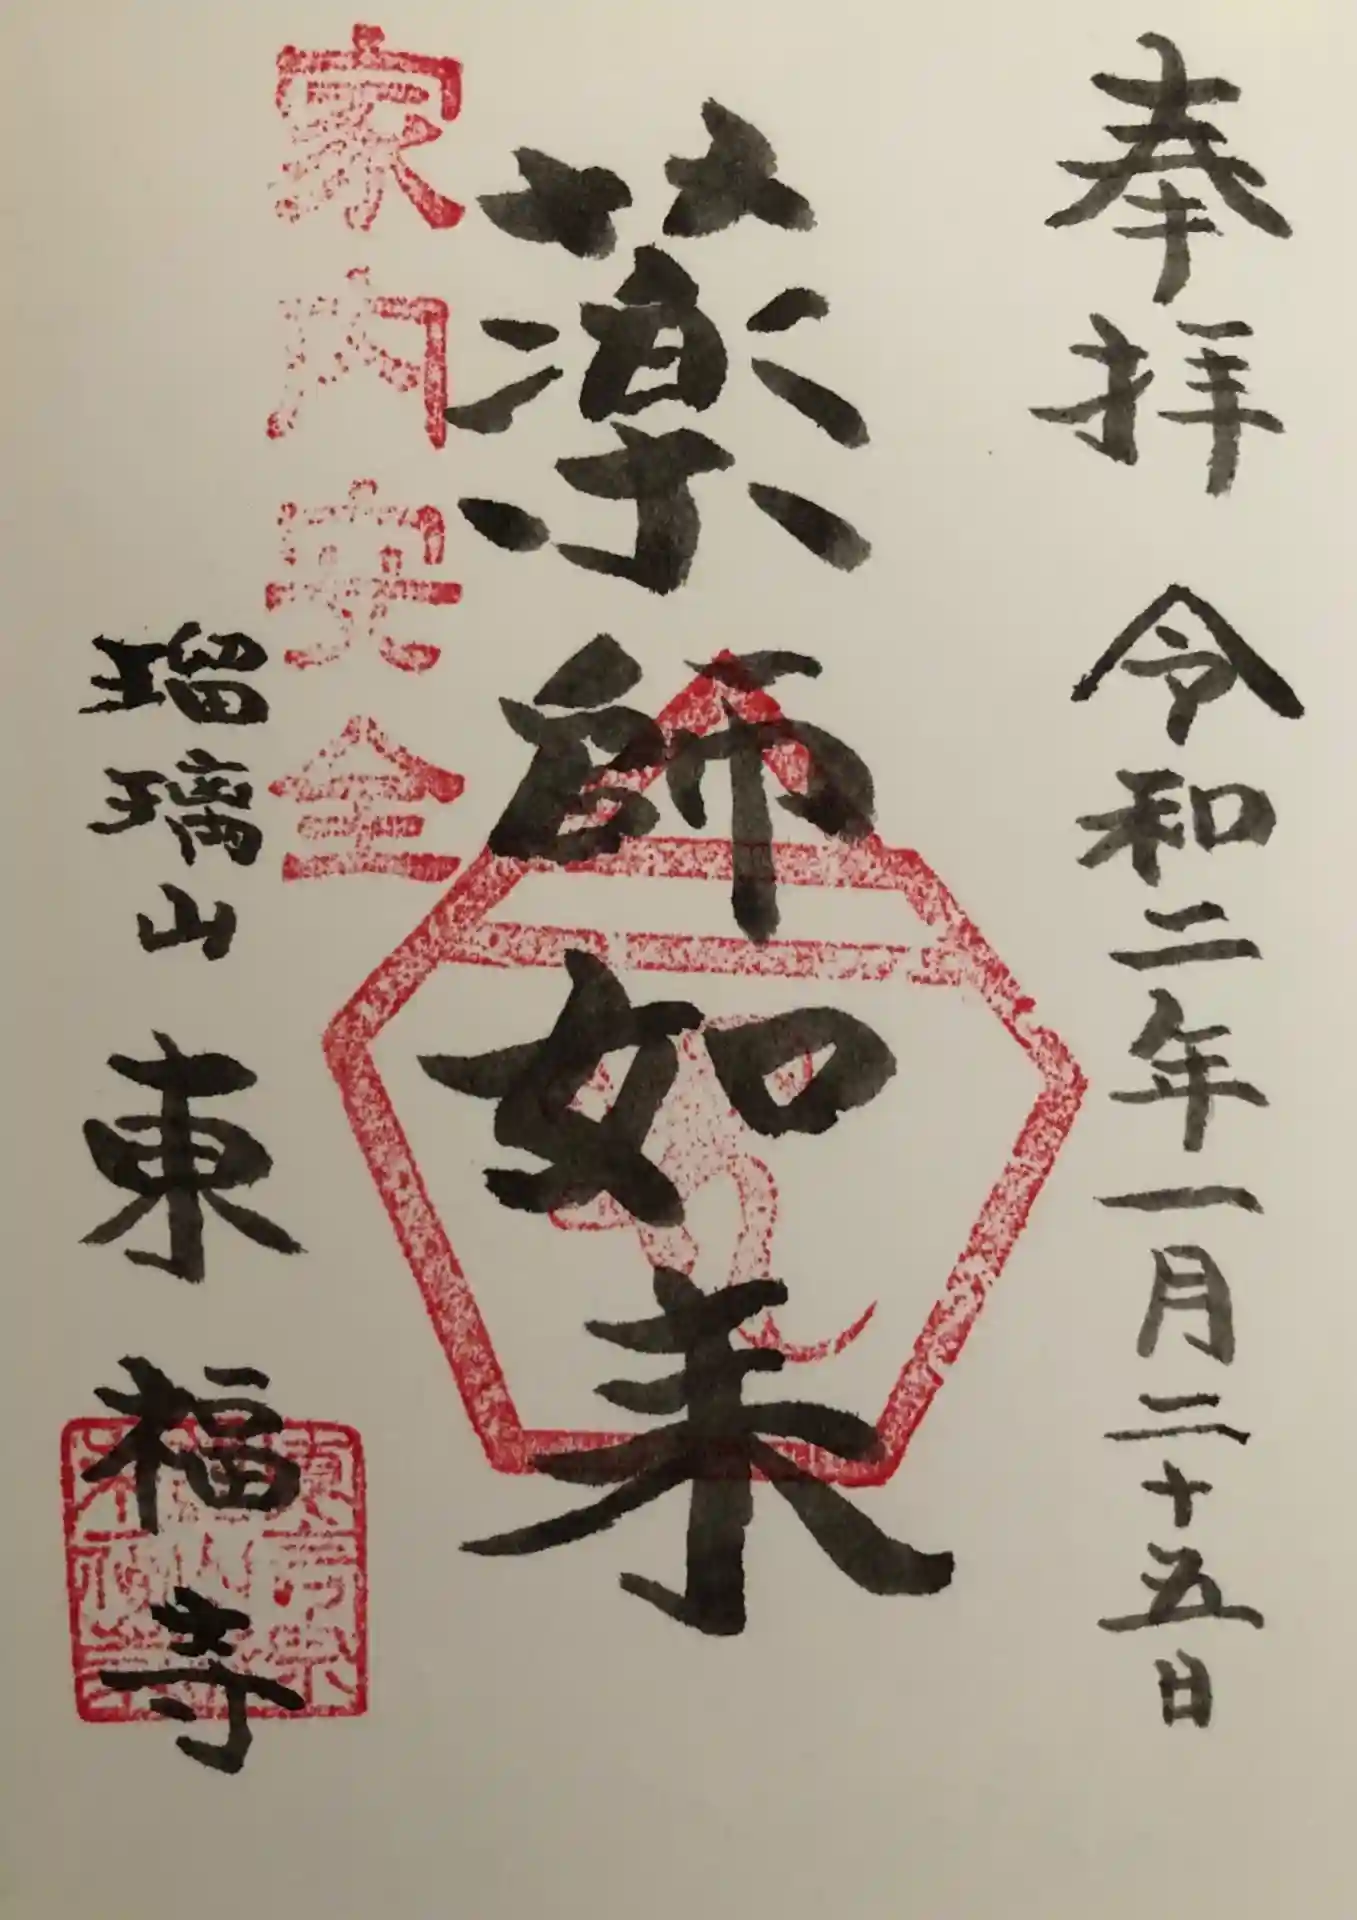 奉拝 令和二年一月二十五日
薬師如来
家内安全
瑠璃山 東福寺